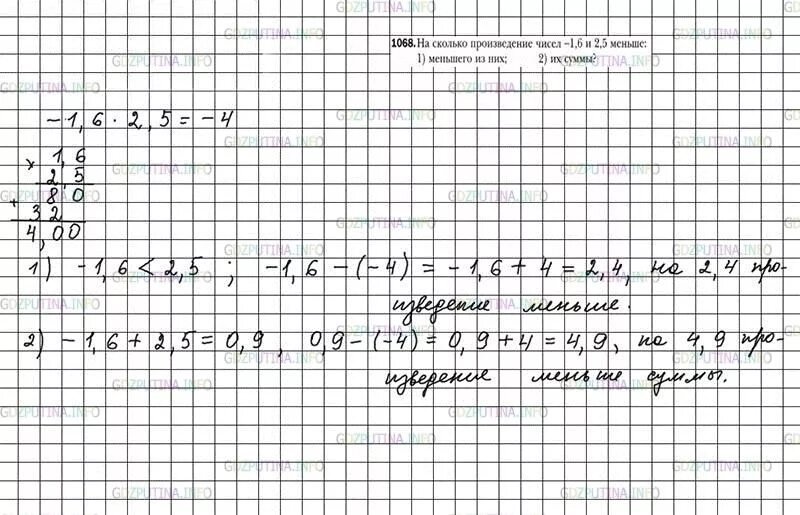 1068. На сколько произведение чисел –1,6 и 2,5 меньше:
1) меньшего из них; 2) их суммы?
-1,6 · 2,5 = -4
× 1,6
2,5
+ 80
32
4,00
1) -1,6 < 2,5 ; -1,6 - (-4) = -1,6 + 4 = 2,4, на 2,4 про-
изведение меньше.
2) -1,6 + 2,5 = 0,9, 0,9 - (-4) = 0,9 + 4 = 4,9, на 4,9 про-
изведение меньше суммы.
GDZPUTINA.INFO